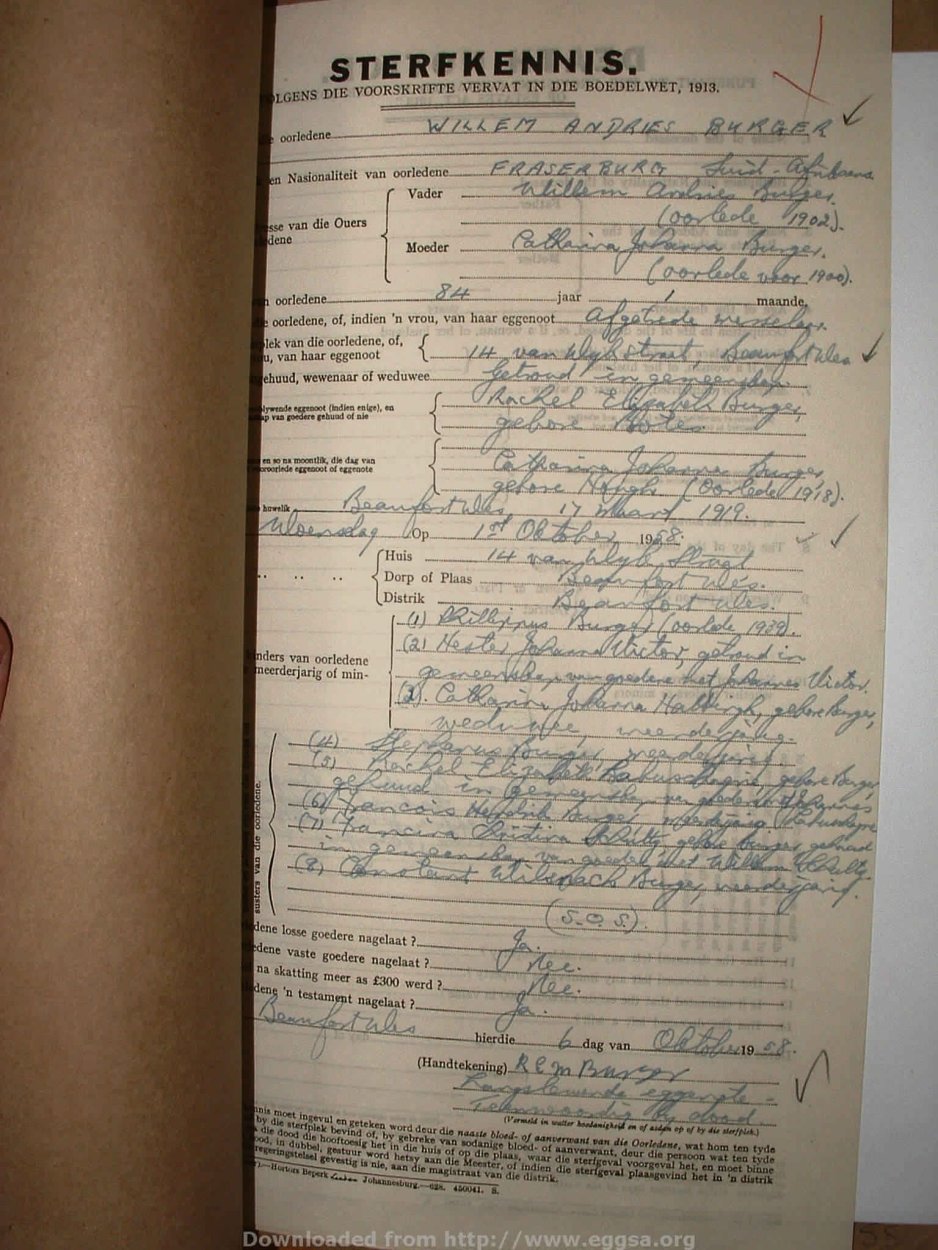 STERFKENNIS.
OLGENS DIE VOORSKRIFTE VERVAT IN DIE BOEDELWET, 1913.
e oorledene WILLEM ANDRIES BURGER
en Nasionaliteit van oorledene FRASERBURG Suid-Afrikaans
Vader Willem Andries Burger.
(oorlede 1902).
sse van die Ouers
dene
Moeder Catharina Johanna Burger.
(oorlede voor 1900).
n oorledene 84 jaar 1 maande.
e oorledene, of, indien 'n vrou, van haar eggenoot Afgetrede messelaar.
plek van die oorledene, of,
ou, van haar eggenoot 14 van Wyk straat Beaufort Wes
gehuud, wewenaar of weduwee Getroud in gemeenskap
lywende eggenoot (indien enige), en
ap van goedere gehuud of nie
Rachel Elizabeth Burger,
gebore Botes.
en so na moontlik, die dag van
ooroorlede eggenoot of eggenote
Catharina Johanna Burger,
gebore (Oorlede 1918).
e huwelik Beaufort Wes, 17 Maart 1919.
Woensdag Op 1st Oktober 1958.
Huis 14 van Wyk Straat
Dorp of Plaas Beaufort Wes.
Distrik Beaufort Wes.
(1) Phillippus Burger (oorlede 1939).
(2) Hester Johanna Victor, getroud in
gemeenskap van goedere met Johannes Victor.
nders van oorledene
meerderjarig of min-
(3). Catharina Johanna gebore Burger,
weduwee, meerderjarig.
(4) Stephanus Burger, meerderjarig.
(5) Rachel Elizabeth Labuschagne, gebore Burger
gehuud in gemeenskap van goedere met Johannes
(6) Francois Hendrik Burger, meerderjarig Labuschagne
(7) Francina Christina gebore Burger, getroud
in gemeenskap van goedere met Willem
(8) Constant Wilsnach Burger, meerderjarig.
susters van die oorledene.
(S.O.S.)
dene losse goedere nagelaat ? Ja.
edene vaste goedere nagelaat ? Nee.
na skatting meer as £300 werd ? Nee.
dene 'n testament nagelaat ? Ja.
Beaufort Wes hierdie 6 dag van Oktober 1958.
(Handtekening) R E M Burger
Langslewende eggenote -
Teenwoordig by dood.
(Vermeld in watter hoedanigheid en of asdan op of by die sterfplek.)
nnis moet ingevul en geteken word deur die naaste bloed- of aanverwant van die Oorledene, wat hom ten tyde
by die sterfplek bevind of, by gebreke van sodanige bloed- of aanverwant, deur die persoon wat ten tyde
die dood die hooftoesig het in die huis of op die plaas, waar die sterfgeval voorgeval het, en moet binne
ood, in dubbel, gestuur word hetsy aan die Meester, of indien die sterfgeval plaasgevind het in 'n distrik
regeringstelsel gevestig is nie, aan die magistraat van die distrik.
—Hortors Beperk Johannesburg.—628. 450041. S.
Downloaded from http://www.eggsa.org